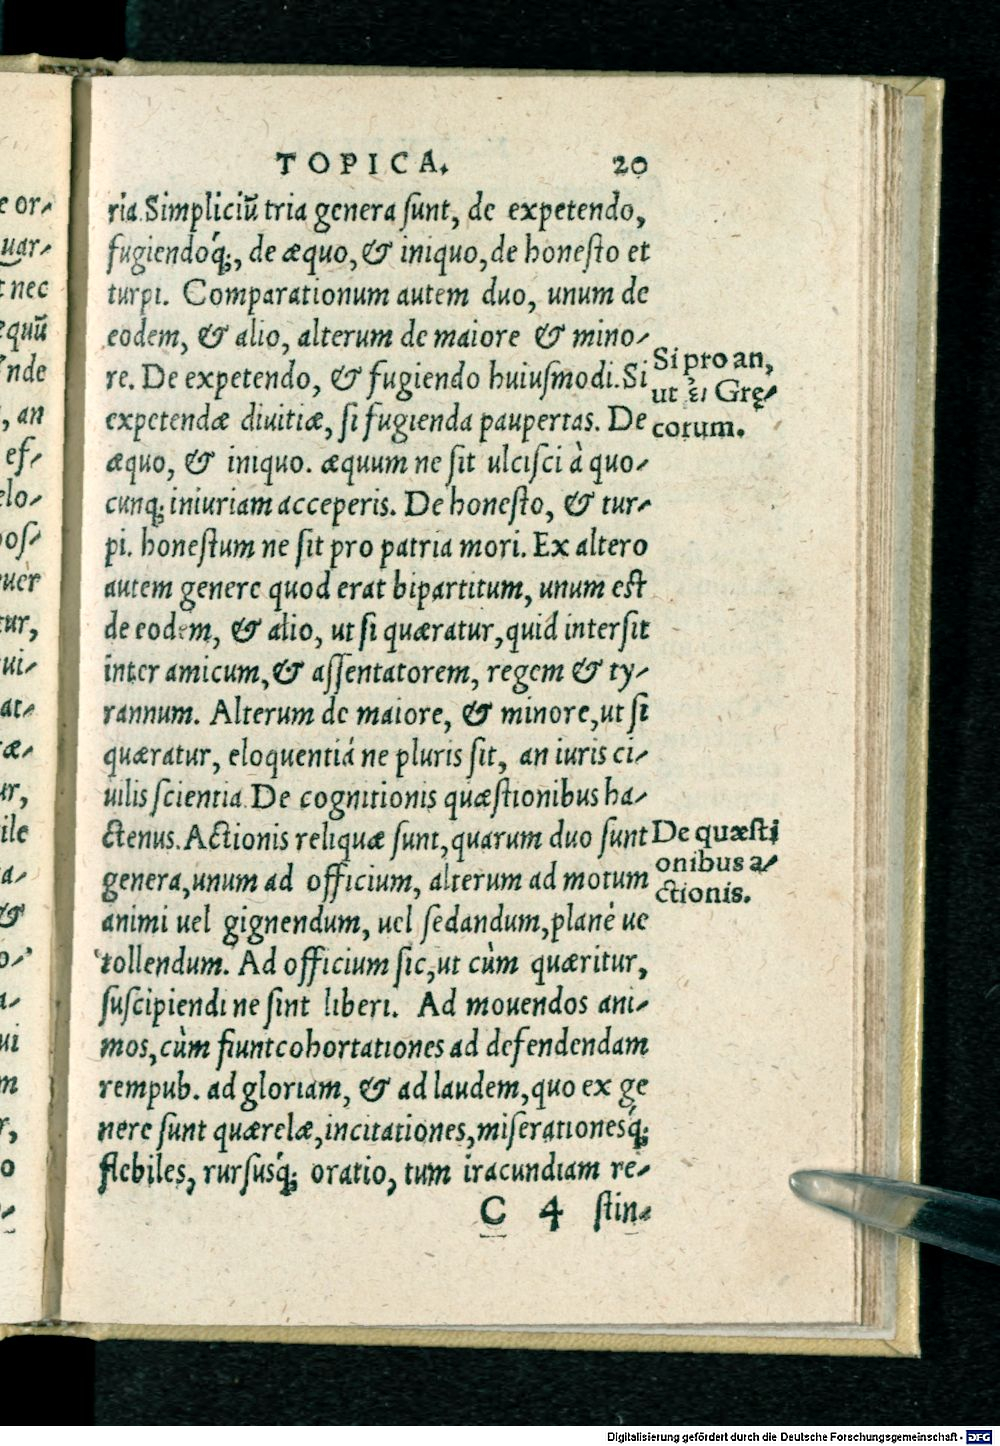 TOPICA. 20
ria. Simpliciũ tria genera ſunt, de expetendo,
fugiendoq́;, de æquo, & iniquo, de honeſto et
turpi. Comparationum autem duo, unum de
eodem, & alio, alterum de maiore & mino-
re. De expetendo, & fugiendo huiuſmodi. Si
expetendæ diuitiæ, ſi fugienda paupertas. De
æquo, & iniquo. æquum ne ſit ulciſci à quo-
cunq; iniuriam acceperis. De honeſto, & tur-
pi. honeſtum ne ſit pro patria mori. Ex altero
autem genere quod erat bipartitum, unum eſt
de eodem, & alio, ut ſi quæratur, quid interſit
inter amicum, & aſſentatorem, regem & ty-
rannum. Alterum de maiore, & minore, ut ſi
quæratur, eloquentiá ne pluris ſit, an iuris ci-
uilis ſcientia. De cognitionis quæſtionibus ha-
ctenus. Actionis reliquæ ſunt, quarum duo ſunt
genera, unum ad officium, alterum ad motum
animi uel gignendum, uel ſedandum, planè ue
tollendum. Ad officium ſic, ut cùm quæritur,
ſuſcipiendi ne ſint liberi. Ad mouendos ani-
mos, cùm fiunt cohortationes ad defendendam
rempub. ad gloriam, & ad laudem, quo ex ge
nere ſunt quærelæ, incitationes, miſerationesq́;
flebiles, rurſusq́; oratio, tum iracundiam re-
C 4 ſtin-
Si pro an,
ut Gręcorum.
De quæſti
onibus a-
ctionis.
e or-
uar-
t nec
equũ
nde
, an
ef-
elo-
poſ-
uer
tur,
ui-
at-
æ-
ur,
ile
a-
&
o-
a-
ui
m
r,
o
Digitalisierung gefördert durch die Deutsche Forschungsgemeinschaft - DFG